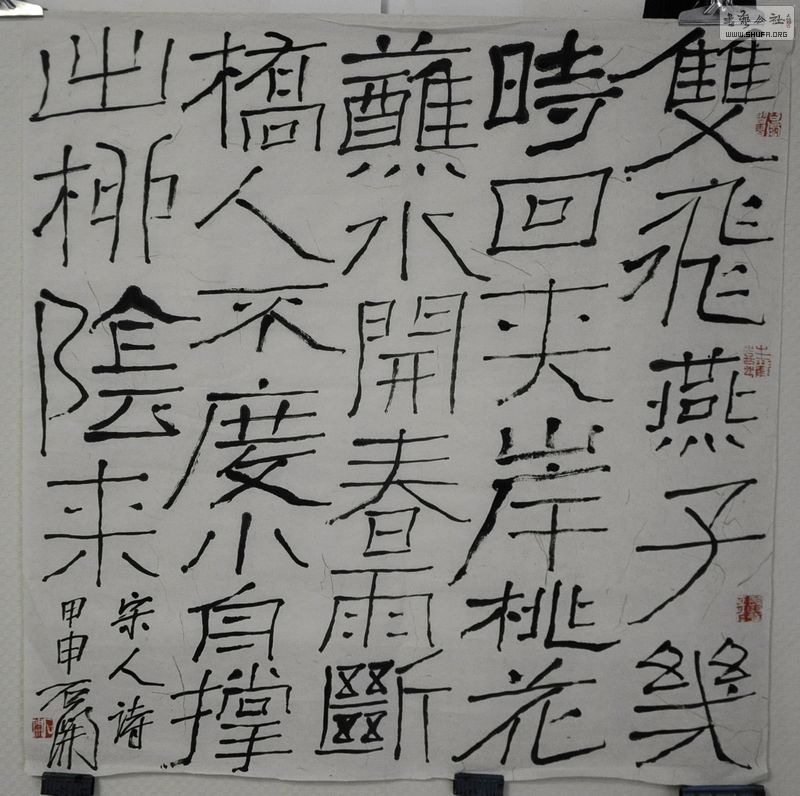 雙飛燕子幾
時回夹岸桃花
蘸水開春雨斷
橋人不度小舟撐
出柳陰来
宋人詩
甲申石開
書藝公社
WWW.SHUFA.ORG